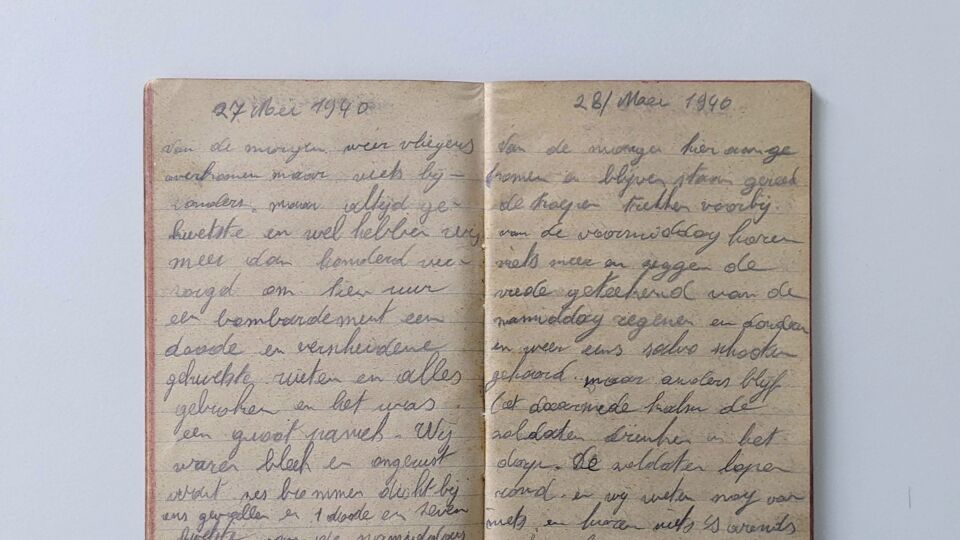 27 Mei 1940
van de morgen weer vliegers
overkomen maar niets by-
zonders. maar altijd ge-
kwetste en wel hebben wij
meer dan honderd ver-
zorgd om tien uur
een bombardement een
doode en verscheidene
gekwetste ruiten en alles
gebroken en het was
een groot paniek. Wij
waren bleek en ongerust
want zes bommen dicht bij
ons gevallen en 1 doode en zeven
kwetste van de namiddag
28/ Meei 1940
Van de morgen hier aange
komen en blijven staan gereed
de troepen trekken voorbij.
van de voormidday horen
niets meer en zeggen de
vrede geteekend van de
namidday regenen en donder
en weer eens salvo schooten
gehoord. maar anders blijf
het daarmede kalm de
soldaten drinken in het
dorp. De soldaten lopen
rond. en wy weten nog van
niets en horen niets 's avonds